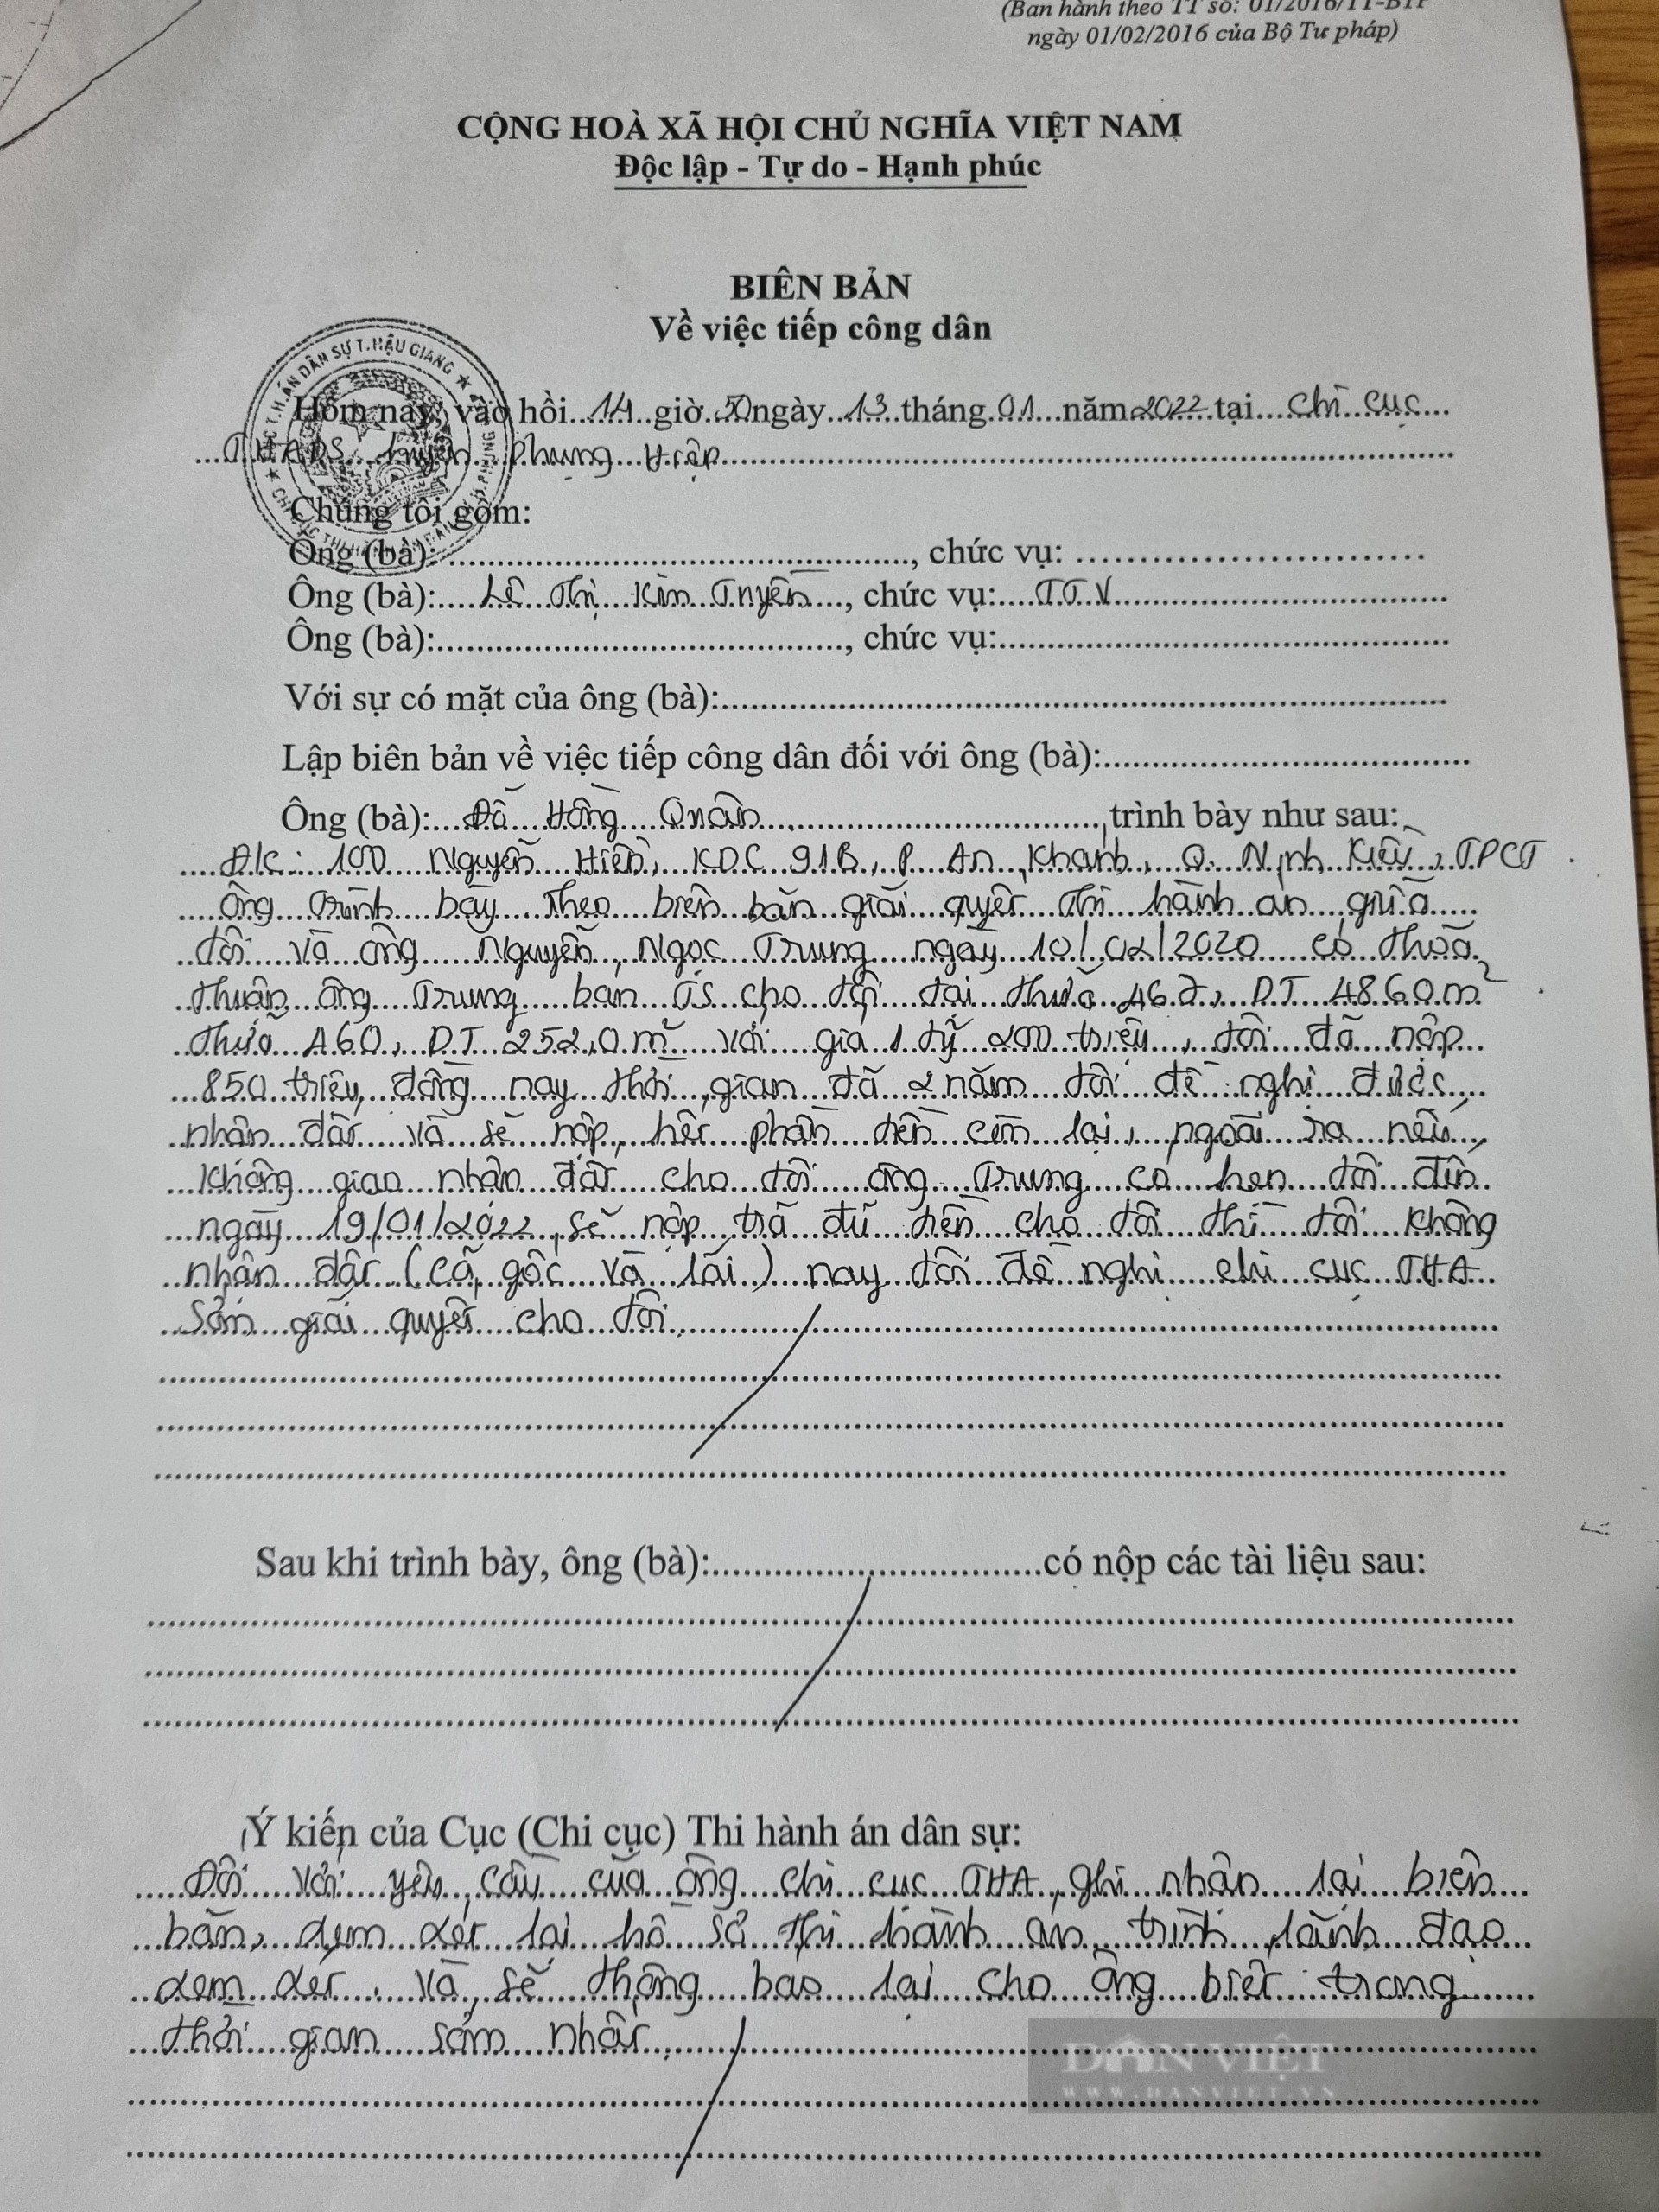 (Ban hành theo TT số: 01/2016/TT-BTP
ngày 01/02/2016 của Bộ Tư pháp)
CỘNG HOÀ XÃ HỘI CHỦ NGHĨA VIỆT NAM
Độc lập - Tự do - Hạnh phúc
BIÊN BẢN
Về việc tiếp công dân
Hôm nay, vào hồi 14 giờ 50 ngày 13 tháng 01 năm 2022 tại chi cục
THADS huyện Phụng Hiệp
Chúng tôi gồm:
Ông (bà): , chức vụ:
Ông (bà): Lê Thị Kim Tuyền, chức vụ: TTV
Ông (bà): , chức vụ:
Với sự có mặt của ông (bà):
Lập biên bản về việc tiếp công dân đối với ông (bà):
Ông (bà): Đỗ Hồng Quân, trình bày như sau:
Đ/c: 100 Nguyễn Hiền, KDC 91B, P. An Khánh, Q. Ninh Kiều, TPCT
Ông trình bày theo biên bản giải quyết thi hành án giữa
tôi và ông Nguyễn Ngọc Trung ngày 10/02/2020 có thoả
thuận ông Trung bán TS cho tôi tại thửa 462, DT 4860m²
thửa 460, DT 2520m² với giá 1 tỷ 200 triệu, tôi đã nộp
850 triệu đồng nay thời gian đã 2 năm tôi đề nghị được
nhận đất và sẽ nộp hết phần tiền còn lại, ngoài ra nếu
không giao nhận đất cho tôi ông Trung có hẹn tôi đến
ngày 19/01/2022 sẽ nộp trả đủ tiền cho tôi thì tôi không
nhận đất (cả gốc và lãi) nay tôi đề nghị chi cục THA
sớm giải quyết cho tôi.
Sau khi trình bày, ông (bà): có nộp các tài liệu sau:
Ý kiến của Cục (Chi cục) Thi hành án dân sự:
Đối với yêu cầu của ông chi cục THA ghi nhận lại biên
bản, xem xét lại hồ sơ thi hành án trình lãnh đạo
xem xét và sẽ thông báo lại cho ông biết trong
thời gian sớm nhất.
DÂN VIỆT
WWW.DANVIET.VN